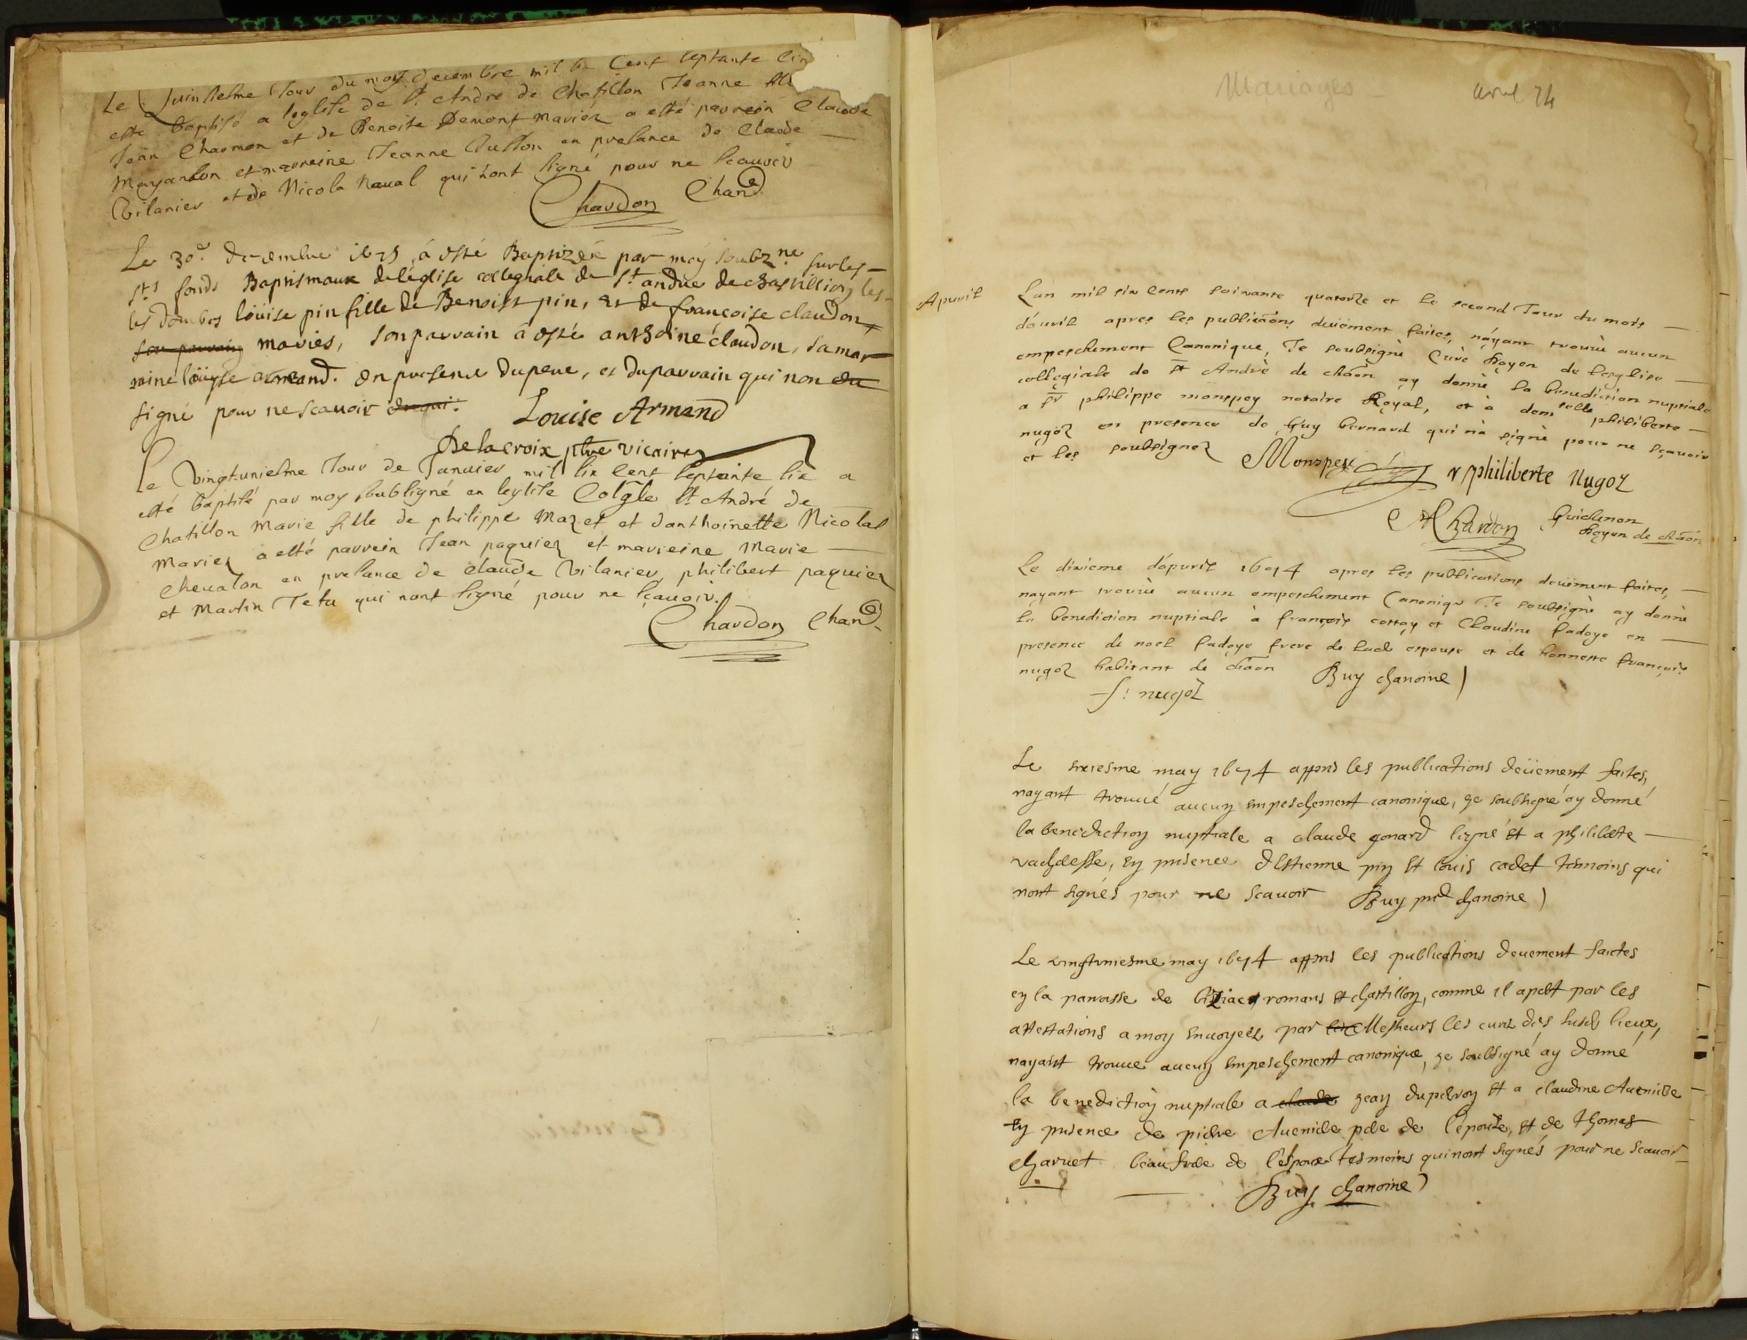 Le Iour du mois decembre mil six Cent septante cin
esté baptisé a leglise de st Andre de Chatillon Jeanne
Jean Charmon et de Benoite Demont mariéz a esté parrein Claude
et marreine Jeanne en presance de Claude
Vilanier et de Nicola Naual qui nont signé pour ne scauoir
Chardon Chane
Le 30e. decembre 1675 à esté Baptizée par moy soubzne sur les
sts fonds Baptismaux de leglise collegiale de st andré de chastillion les
les dombes loüise pin fille de Benoist pin, et de francoise claudon
son parrain mariés, son parrain à esté anthoine claudon, sa mar
raine loüyse armand. en presence du pere, et du parrain qui non
signé pour ne scauoir
Louise Armand
Delacroix ptre vicaire
Le Vingtuniesme Iour de Januier mil six Cent septante six a
esté baptisé par moy soubsigné en leglise Colgle st André de
Chatillon Marie fille de philippe Mazet et danthoinette Nicolas
Mariez a esté parrein Jean paquiez et marreine Marie
Cheualon en presance de Claude Vilanier, philibert paquiez
et Martin Tetu qui nont signé pour ne scauoir.
Chardon Chane
Mariages avril 74
Apuril
Lan mil six cents soixante quatorze et le second Iour du mois
d'auril apres les publicãons deüement faites, náyant trouuè aucun
empeschement Canonique, Je soubsignè Curè Doyen de l'esglise
collegiale de st Andrè de chãon ay donnè la benediction nuptiale
a sr philippe monspey notaire Royal, et à demlle philiberte
nugoz en presence de Guy bernard qui n'a signè pour ne scauoir
et les soubsignez
Monspey philiberte Nugoz
Chardon Guichenon
Doyen de chãon
Le dixieme d'apuril 1674 apres les publications deüement faites,
nayant trouuè aucun empeschement Canonique Je soubsignè ay donnè
la benediction nuptiale à françois cottay et Claudine fadoye en
presence de noel fadoye frere de lade espouse et de honneste françois
nugoz habitant de chãon Buy chanoine
f: nugoz
Le sixiesme may 1674 appres les publications deüement faites,
nayant trouué aucun empeschement canonique, je soubsigné ay donné
la benediction nuptiale a claude gonard signé et a philibte
vachdesse, en presence d'Estienne pin et louis cadet tesmoins qui
nont signés pour ne scauoir Buy prd chanoine
Le vingtuniesme may 1674 appres les publications deuement faictes
en la parroisse de biziac romans et chastillon, comme il apert par les
attestations a moy enuoyées par Messieurs les curez des susds lieux,
nayant trouue aucun empeschement canonique, je soubsigné ay donné
la benediction nuptiale a claude jean duperroy et a claudine Auenide
en presence de pierre Auenide pere de l'epouse, et de thomas
charuet beaufrere de l'espoux tesmoins qui nont signés pour ne scauoir
Buy chanoine